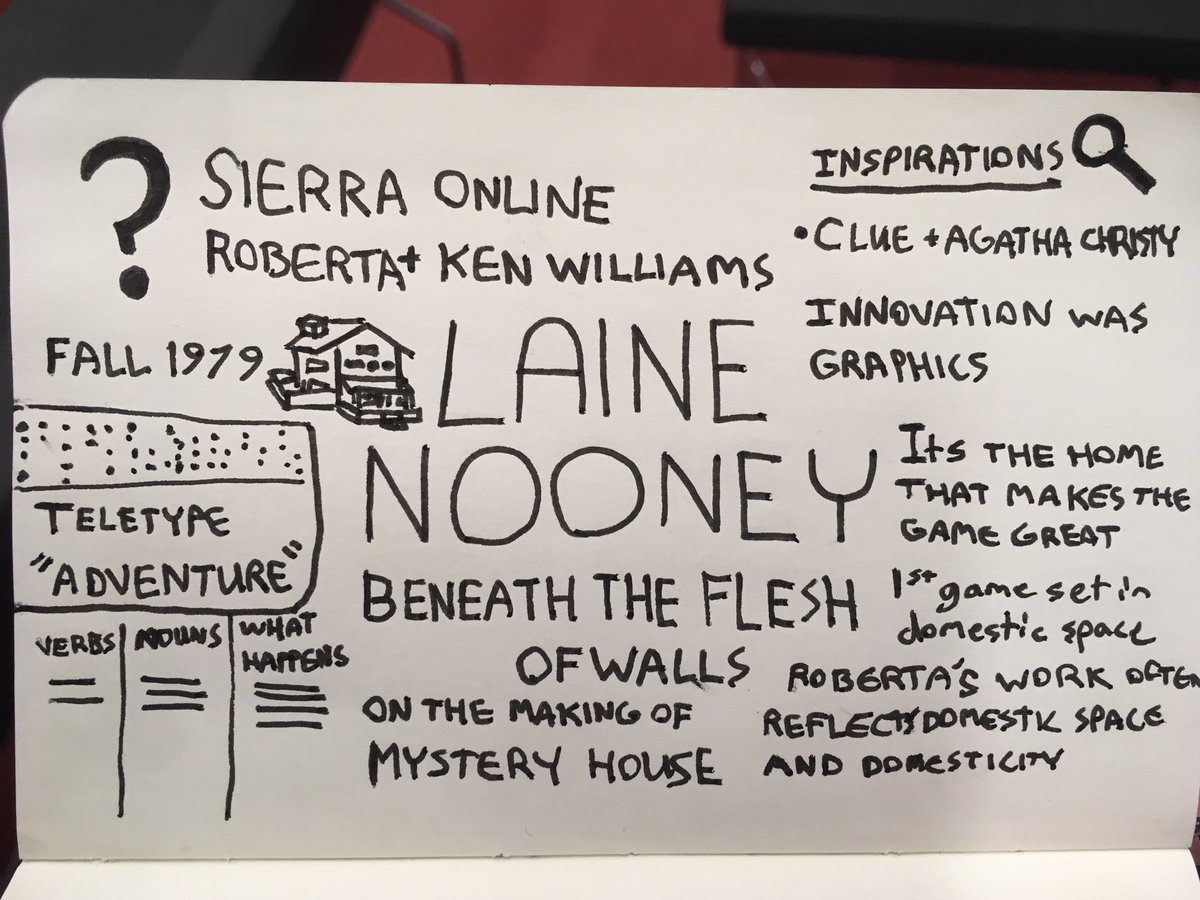 SIERRA ONLINE
ROBERTA + KEN WILLIAMS
FALL 1979
TELETYPE
"ADVENTURE"
VERBS
NOUNS
WHAT
HAPPENS
LAINE
NOONEY
BENEATH THE FLESH
OF WALLS
ON THE MAKING OF
MYSTERY HOUSE
INSPIRATIONS
• CLUE + AGATHA CHRISTY
INNOVATION WAS
GRAPHICS
ITS THE HOME
THAT MAKES THE
GAME GREAT
1st game set in
domestic space
ROBERTA'S WORK OFTEN
REFLECTS DOMESTIC SPACE
AND DOMESTICITY